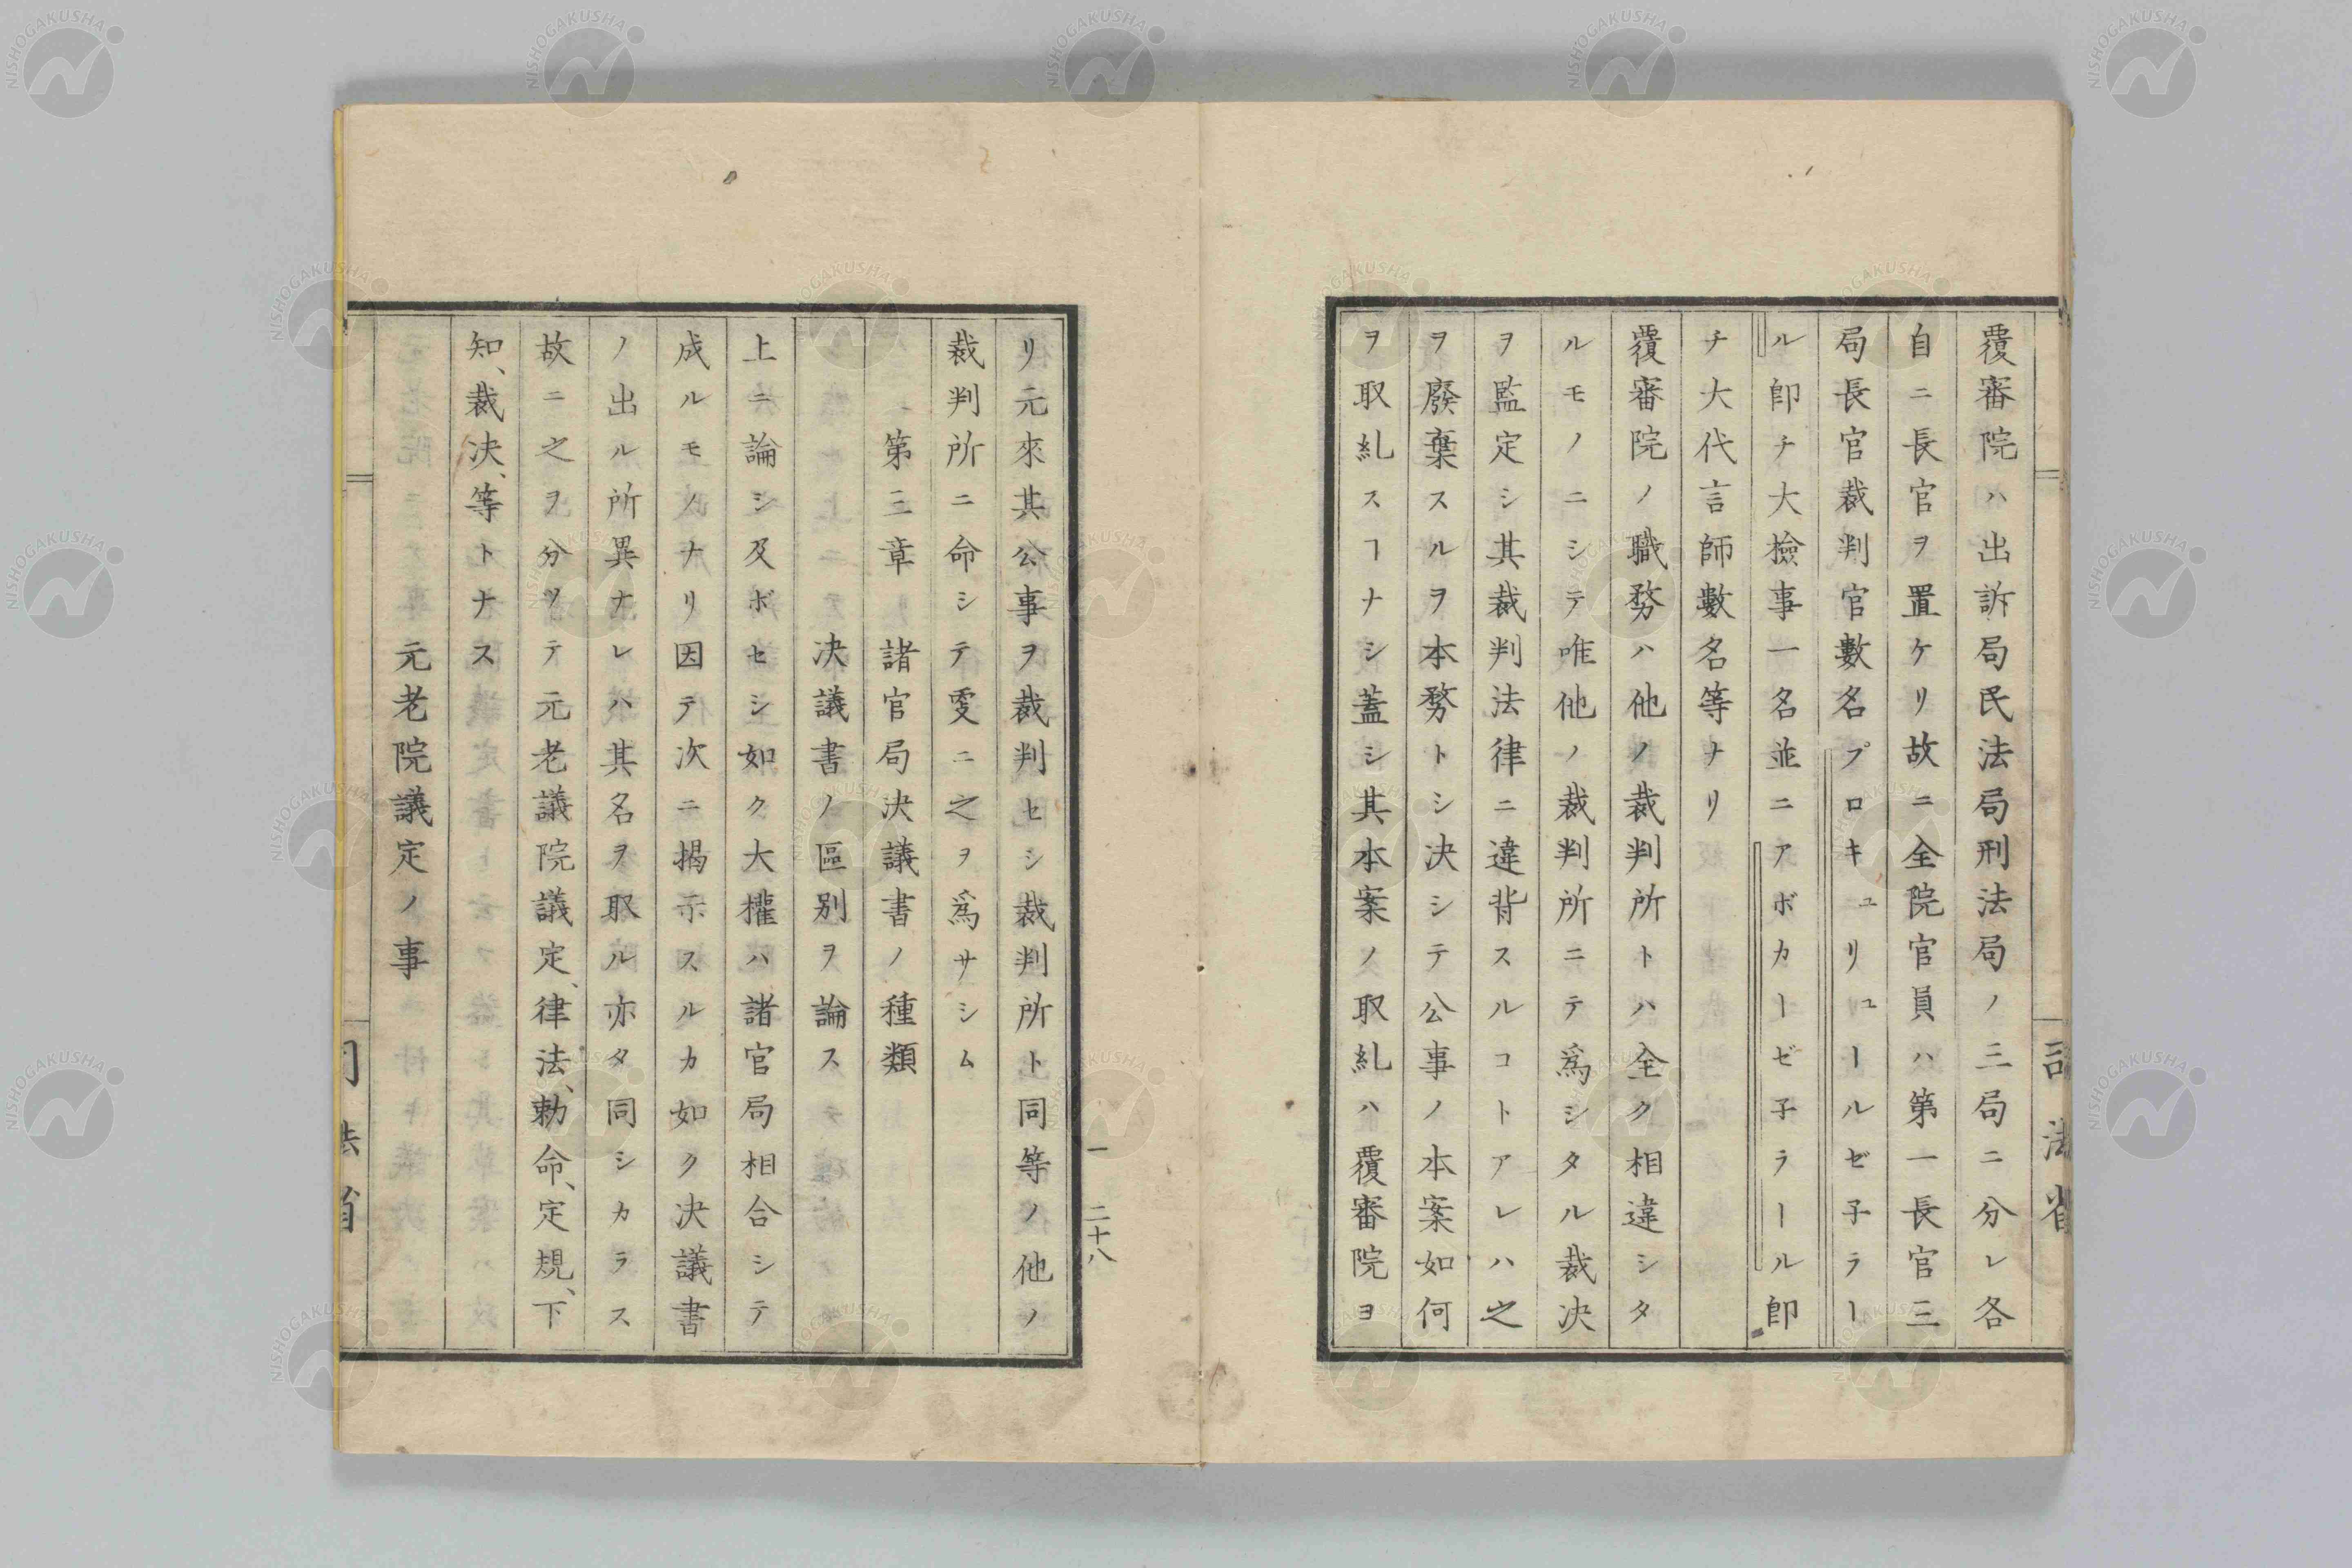 覆審院ハ出訴局民法局刑法局ノ三局ニ分レ各
自ニ長官ヲ置ケリ故ニ全院官員ハ第一長官三
局長官裁判官數名プロキュリュールゼ子ラー
ル卽チ大撿事一名並ニアボカーゼ子ラール卽
チ大代言師數名等ナリ
覆審院ノ職務ハ他ノ裁判所トハ全ク相違シタ
ルモノニシテ唯他ノ裁判所ニテ爲シタル裁决
ヲ監定シ其裁判法律ニ違背スルコトアレハ之
ヲ廢棄スルヲ本務トシ决シテ公事ノ本案如何
ヲ取糺スヿナシ蓋シ其本案ノ取糺ハ覆審院ヨ
リ元來其公事ヲ裁判セシ裁判所ト同等ノ他ノ
裁判所ニ命シテ更ニ之ヲ爲サシム
第三章 諸官局决議書ノ種類
决議書ノ區別ヲ論ス
上ニ論シ及ボセシ如ク大權ハ諸官局相合シテ
成ルモノナリ因テ次ニ揭示スルカ如ク决議書
ノ出ル所異ナレハ其名ヲ取ル亦タ同シカラス
故ニ之ヲ分ツテ元老議院議定、律法、勅命、定規、下
知、裁决、等トナス
元老院議定ノ事
一 二十八
司法省
NISHOGAKUSHA